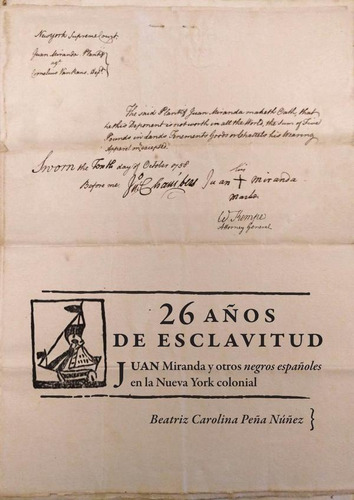 New york Supream Court.
Juan Miranda Plantif
agt
Cornelius Vanrans. Deft
The said Plantif Juan Miranda maketh Oath, that
he this Deponent is not worth in all the World, the Sum of Five
Pounds in Lands Tenements Goods or Chattels his Wearing
Apparel in excepted.
Sworn the Tenth day of October 1758
Before me: Jno Chambers Juan his + miranda
marke
W. Kempe
Attorney General
26 AÑOS
DE ESCLAVITUD
JUAN Miranda y otros negros españoles
en la Nueva York colonial
Beatriz Carolina Peña Núñez }